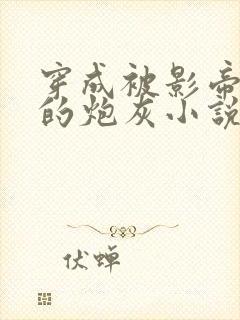 穿成被影帝
的炮灰小說
伏蝉